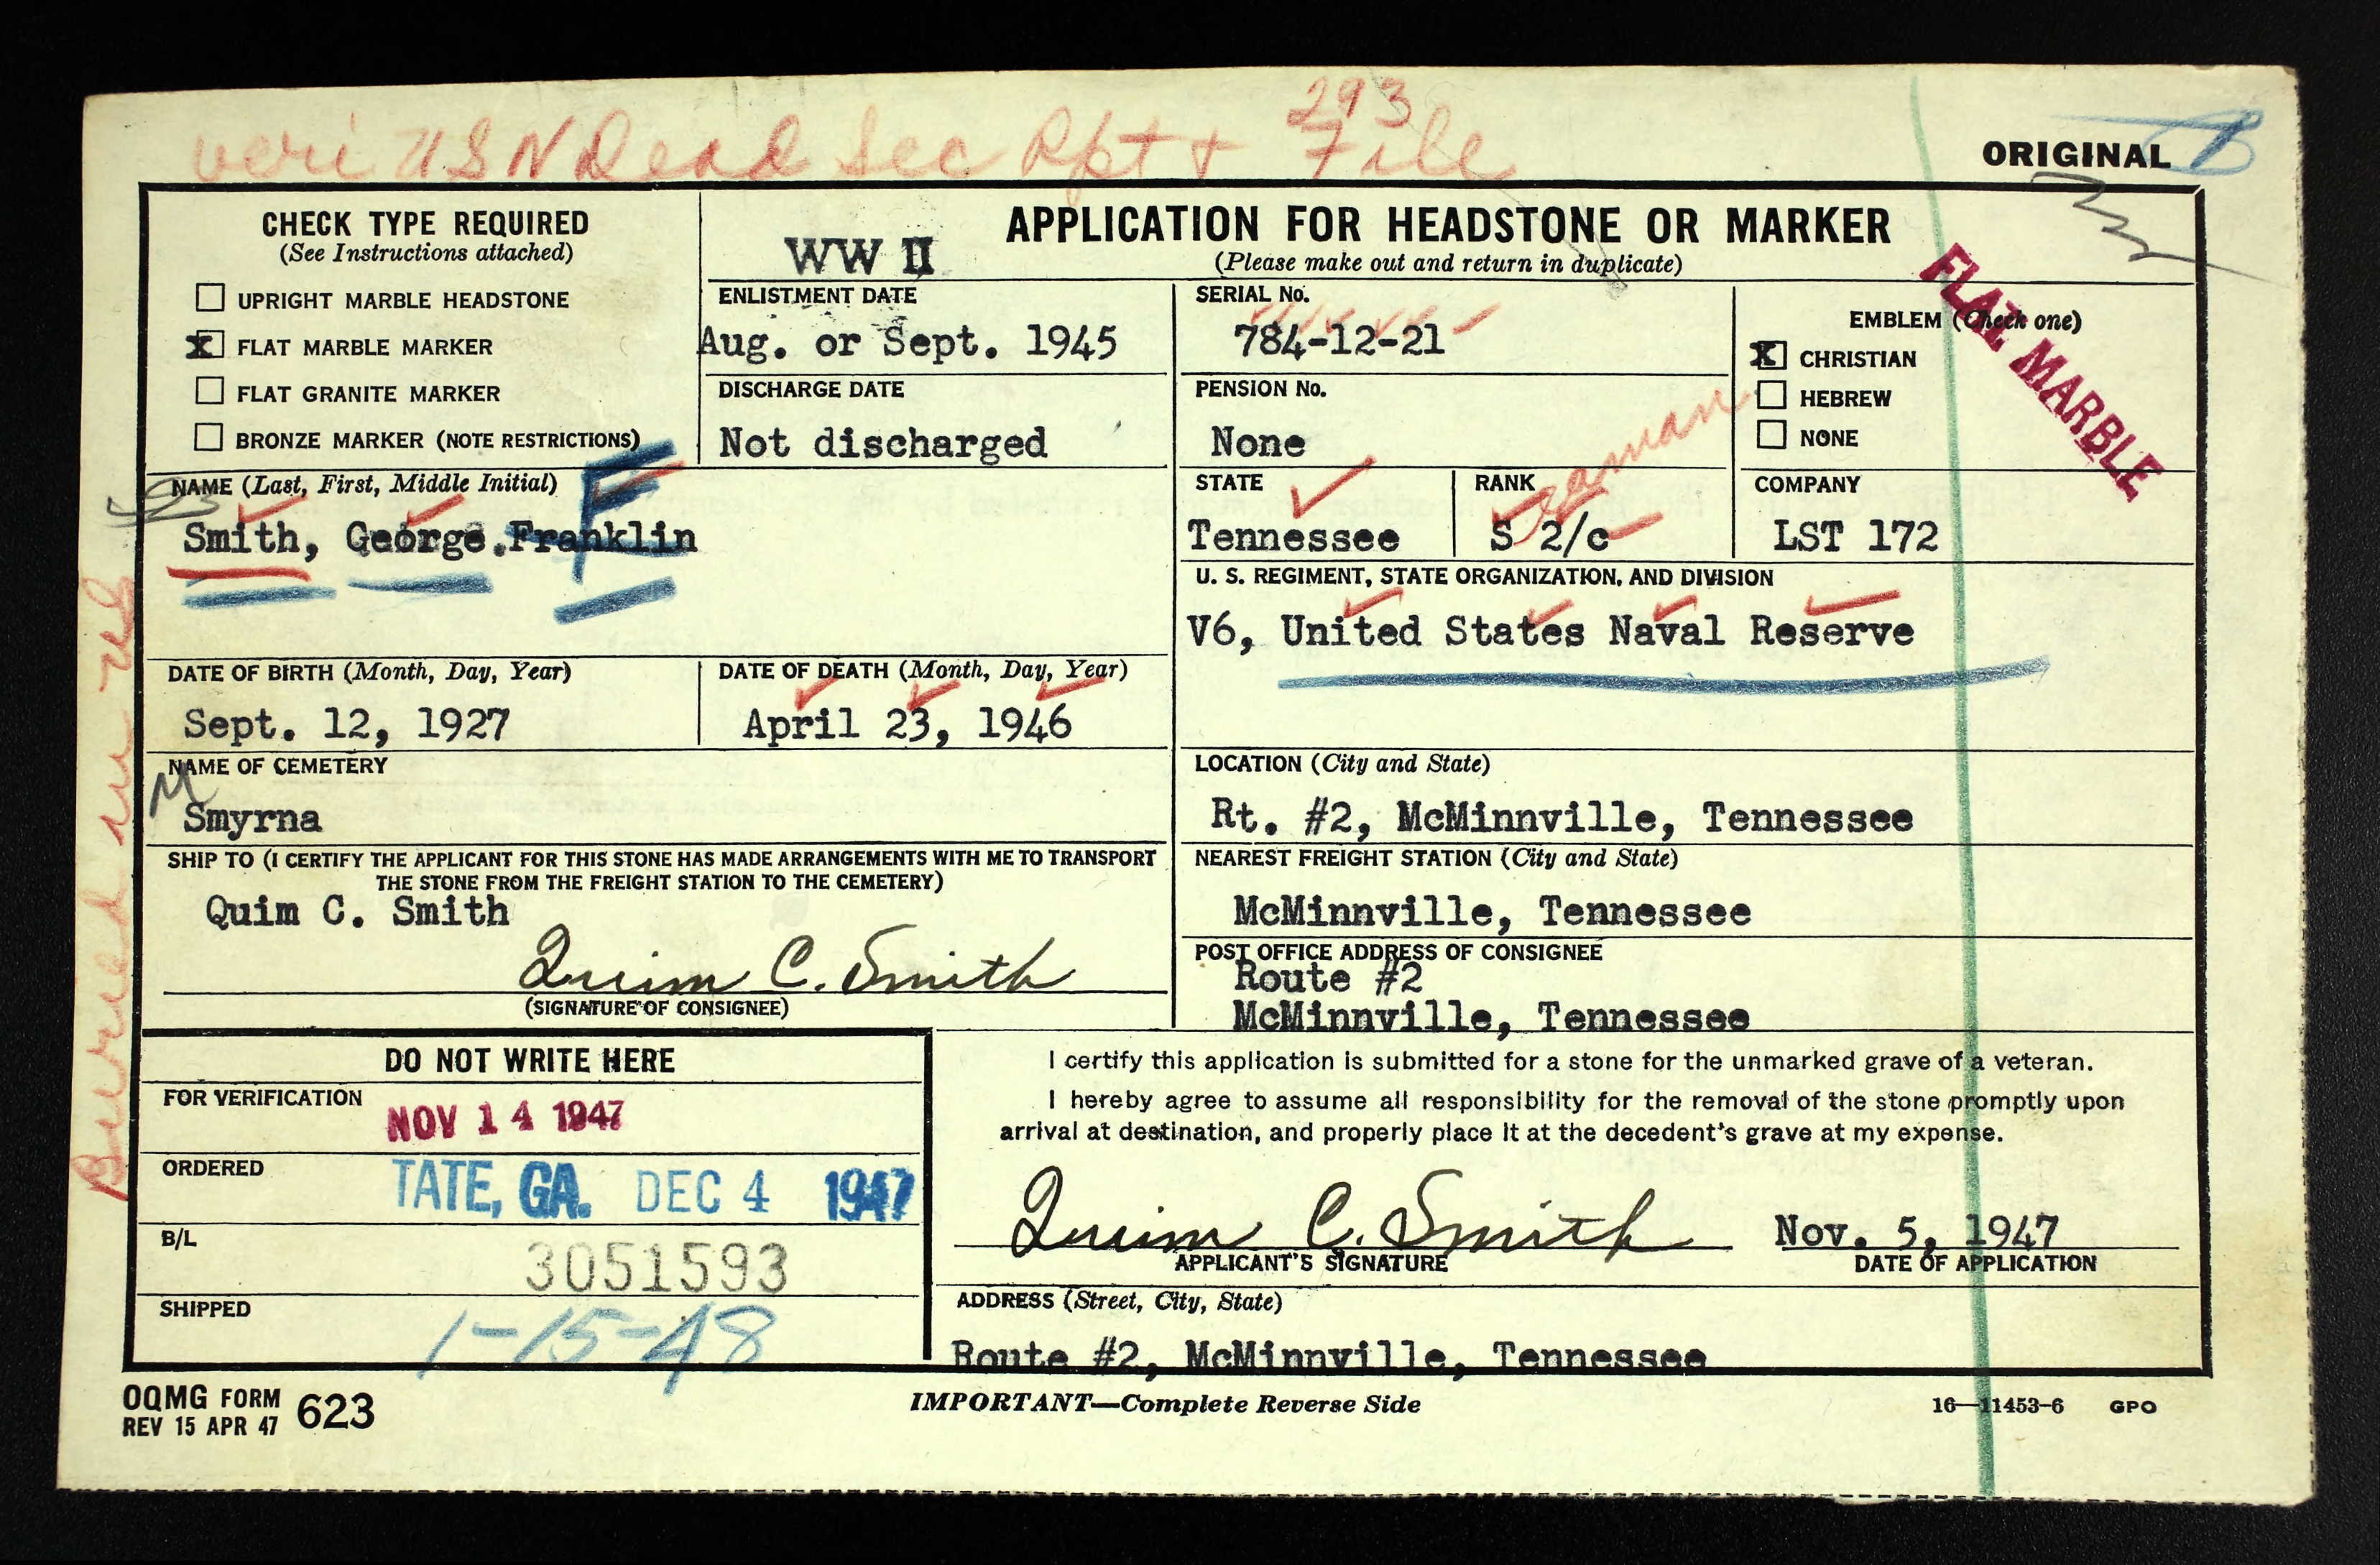 293
veri USN Dead Sec Rpt + File
ORIGINAL
CHECK TYPE REQUIRED
(See Instructions attached)
UPRIGHT MARBLE HEADSTONE
X FLAT MARBLE MARKER
FLAT GRANITE MARKER
BRONZE MARKER (NOTE RESTRICTIONS)
WW II
APPLICATION FOR HEADSTONE OR MARKER
(Please make out and return in duplicate)
ENLISTMENT DATE
Aug. or Sept. 1945
SERIAL No.
784-12-21
EMBLEM (Check one)
X CHRISTIAN
HEBREW
NONE
FLAT MARBLE
DISCHARGE DATE
Not discharged
PENSION No.
None
NAME (Last, First, Middle Initial)
Smith, George.Franklin
F
STATE
Tennessee
RANK
S 2/c
Seaman
COMPANY
LST 172
U. S. REGIMENT, STATE ORGANIZATION, AND DIVISION
V6, United States Naval Reserve
DATE OF BIRTH (Month, Day, Year)
Sept. 12, 1927
DATE OF DEATH (Month, Day, Year)
April 23, 1946
NAME OF CEMETERY
Smyrna
LOCATION (City and State)
Rt. #2, McMinnville, Tennessee
SHIP TO (I CERTIFY THE APPLICANT FOR THIS STONE HAS MADE ARRANGEMENTS WITH ME TO TRANSPORT
THE STONE FROM THE FREIGHT STATION TO THE CEMETERY)
Quim C. Smith
Quim C. Smith
(SIGNATURE OF CONSIGNEE)
NEAREST FREIGHT STATION (City and State)
McMinnville, Tennessee
POST OFFICE ADDRESS OF CONSIGNEE
Route #2
McMinnville, Tennessee
Buried in US
DO NOT WRITE HERE
FOR VERIFICATION
NOV 14 1947
ORDERED
TATE, GA. DEC 4 1947
B/L
3051593
SHIPPED
1-15-48
I certify this application is submitted for a stone for the unmarked grave of a veteran.
I hereby agree to assume all responsibility for the removal of the stone promptly upon
arrival at destination, and properly place it at the decedent's grave at my expense.
Quim C. Smith
Nov. 5, 1947
APPLICANT'S SIGNATURE
DATE OF APPLICATION
ADDRESS (Street, City, State)
Route #2, McMinnville, Tennessee
OQMG FORM 623
REV 15 APR 47
IMPORTANT—Complete Reverse Side
16—11453-6 GPO